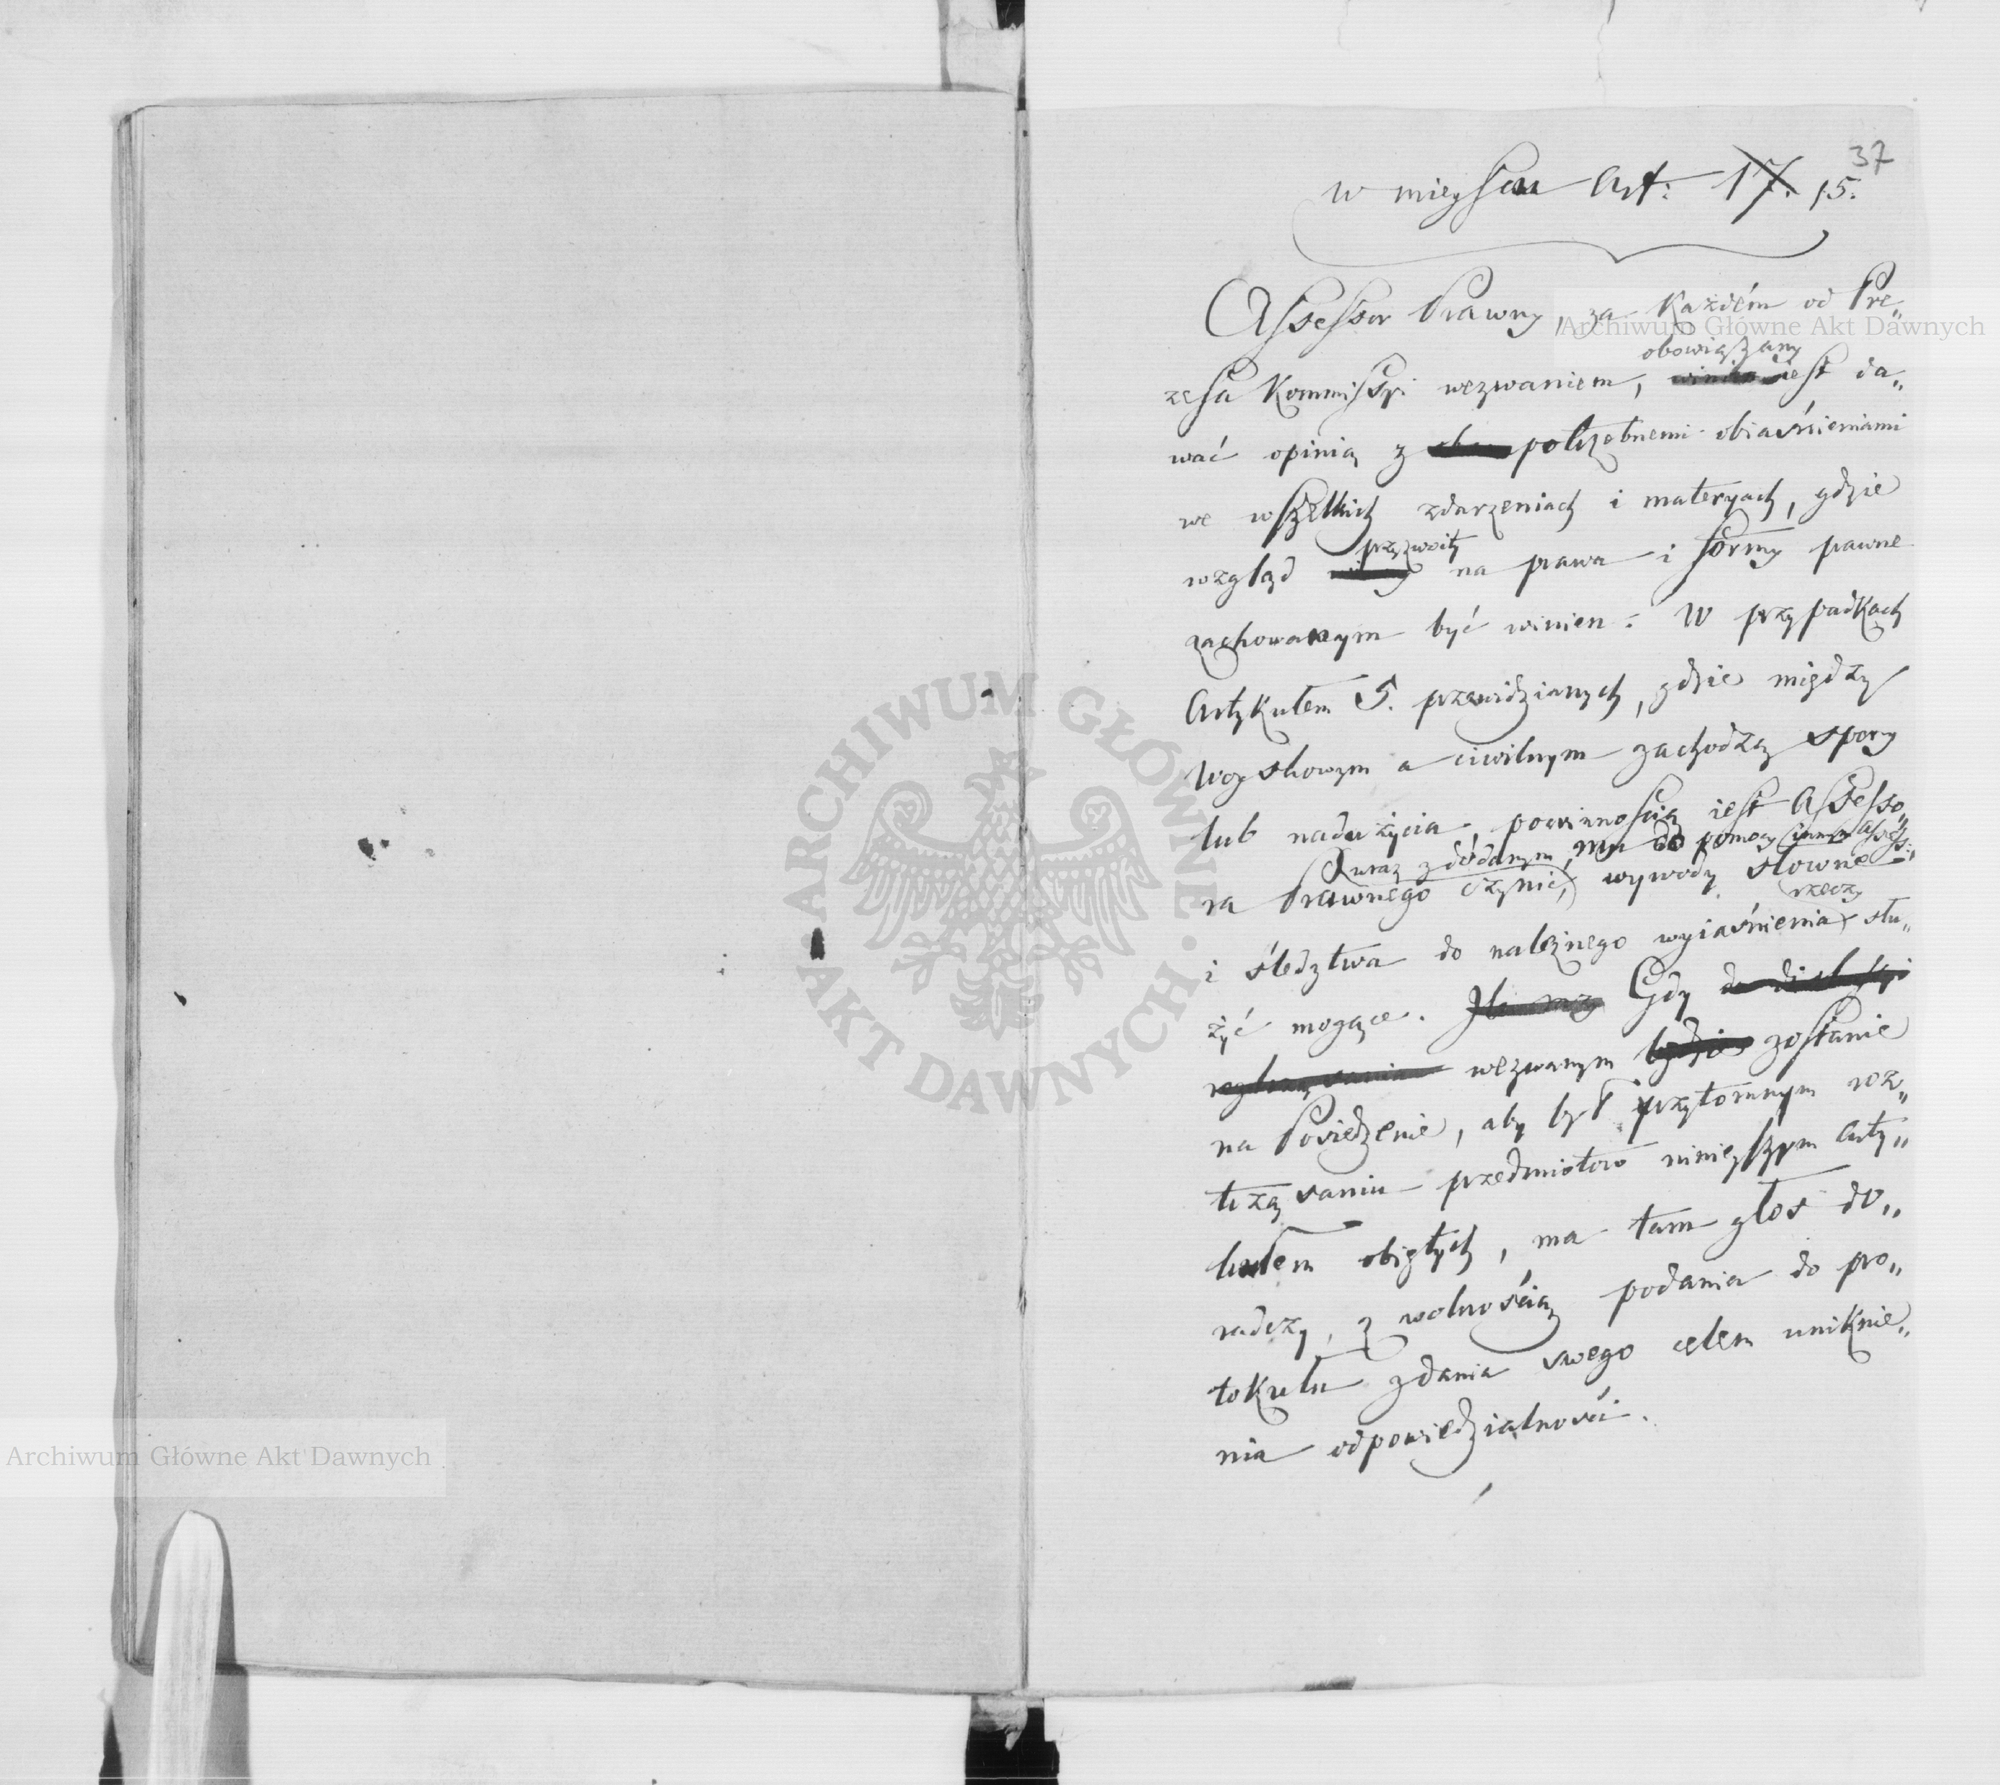 37
w mieyscu Art: 17. 15.
Assessor Prawny, za każdém od Pre„
zesa Kommissyi wezwaniem, obowiązany winien iest da„
wać opinią z potrzebnemi obiaśnieniami
we wszelkich zdarzeniach i materyach, gdzie
wzgląd przyzwoity na prawa i formy pawne
zachowanym być winien: W przypadkach
Artykułem 5. przewidzianych, gdzie między
Woyskowym a ciwilnym zachodzą spory
lub nadużycia, powinnością iest Assesso„
(wraz z dodanym mu do pomocy innym Assess:)
ra Prawnego czynić, wywody słowne
i śledztwa do należnego wyiaśnienia rzeczy słu„
żyć mogące. Gdy do dyskussyi
roztrząsania wezwanym będzie zostanie
na Posiedzenie, aby był przytomnym roz„
trząsaniu przedmiotów ninieyszym Arty„
kułem obiętych, ma tam głos do„
radczy, z wolnością podania do pro„
tokułu zdania swego celem uniknie„
nia odpowiedzialności.
Archiwum Główne Akt Dawnych
Archiwum Główne Akt Dawnych
ARCHIWUM GŁÓWNE · AKT DAWNYCH ·